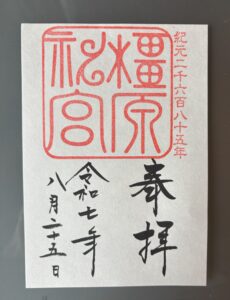 紀元二千六百八十五年
橿原
神宮
奉拝
令和七年
八月二十五日